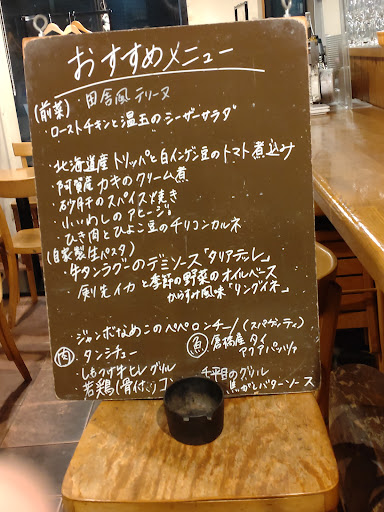 おすすめメニュー
(前菜)・田舎風テリーヌ
・ローストチキンと温玉のシーザーサラダ
・北海道産トリッパと白インゲン豆のトマト煮込み
・阿賀産カキのクリーム煮
・砂肝のスパイス焼き
・小いわしのアヒージョ
・ひき肉とひよこ豆のチリコンカルネ
(自家製生パスタ)
・牛タンラグーのデミソース「タリアテッレ」
・剣先イカと季節の野菜のオイルベース
からすみ風味「リングイネ」
・ジャンボなめこのペペロンチーノ(スパゲッティ)
(肉)タンシチュー
しもつけ牛ヒレグリル
若鶏(骨付)
(魚)倉橋産タイ
アクアパッツァ
平目のグリル
焦がしバターソース